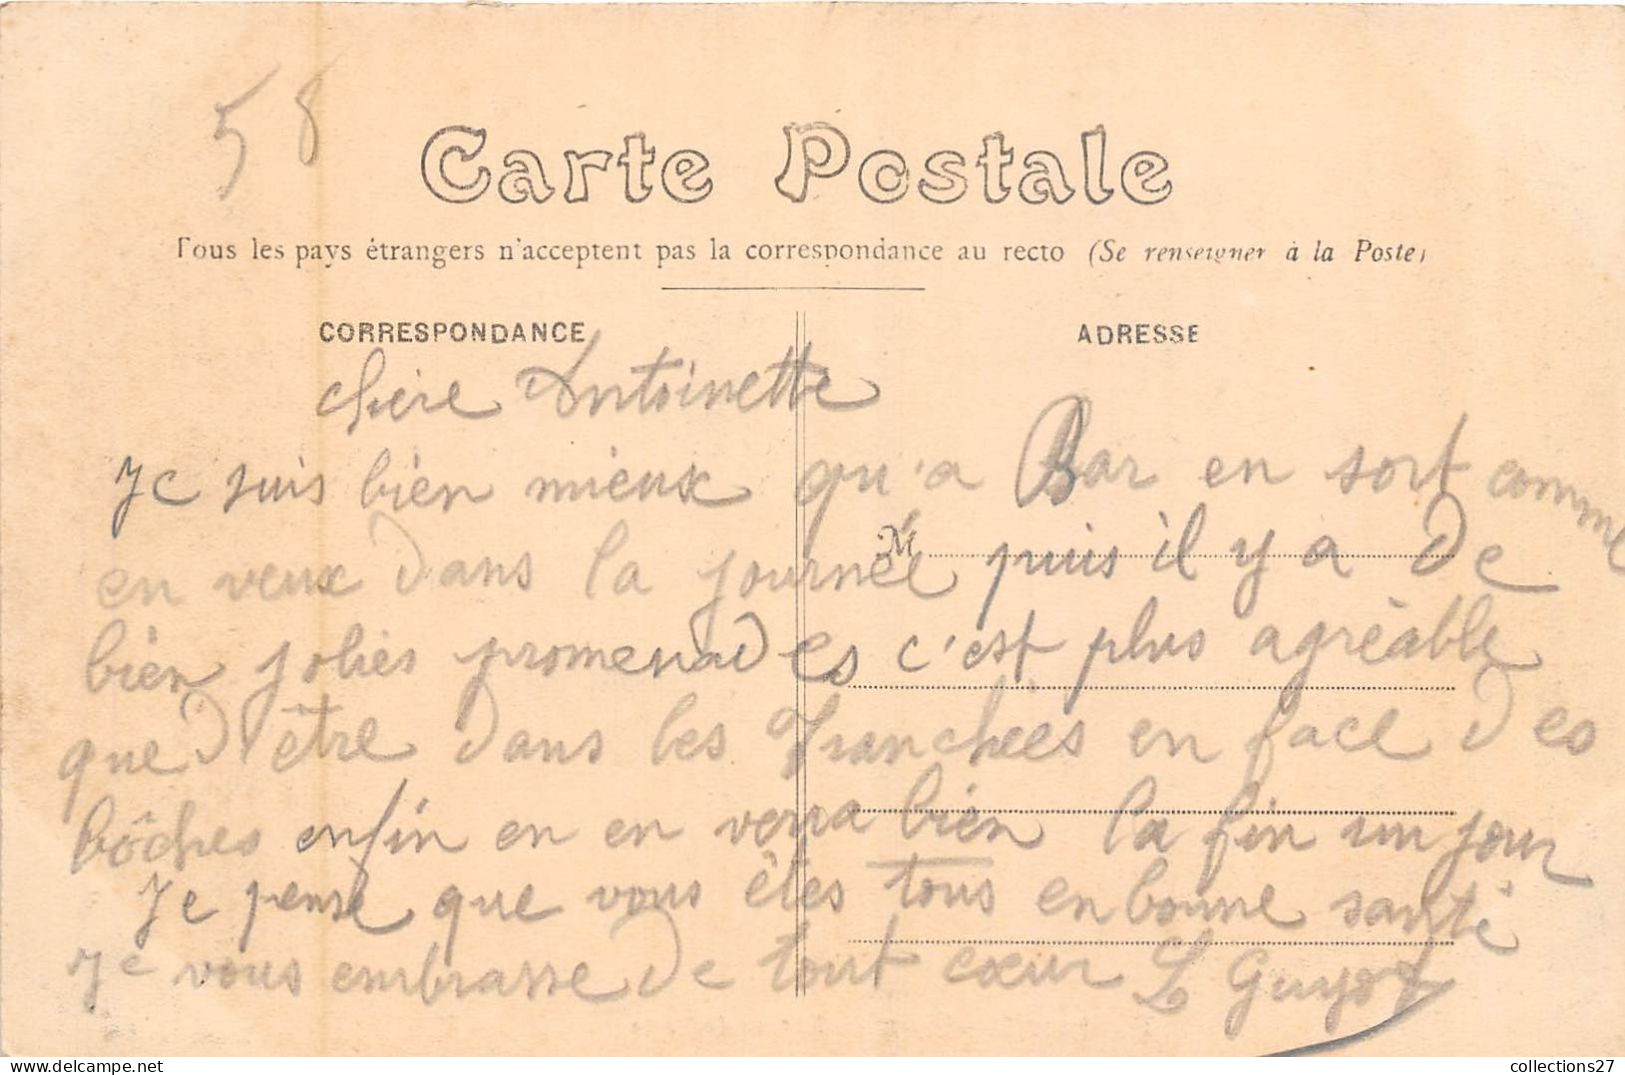 58
Carte Postale
Tous les pays étrangers n'acceptent pas la correspondance au recto (Se renseigner à la Poste)
CORRESPONDANCE
ADRESSE
chère Antoinette
Je suis bien mieux qu'a Bar en sort comme
en veux dans la journée puis il y a de
M
bien jolies promenades c'est plus agréable
que d'être dans les tranchées en face des
bôches enfin en en verra bien la fin un jour
Je pense que vous êtes tous en bonne santé
Je vous embrasse de tout cœur L Guyot
collections27